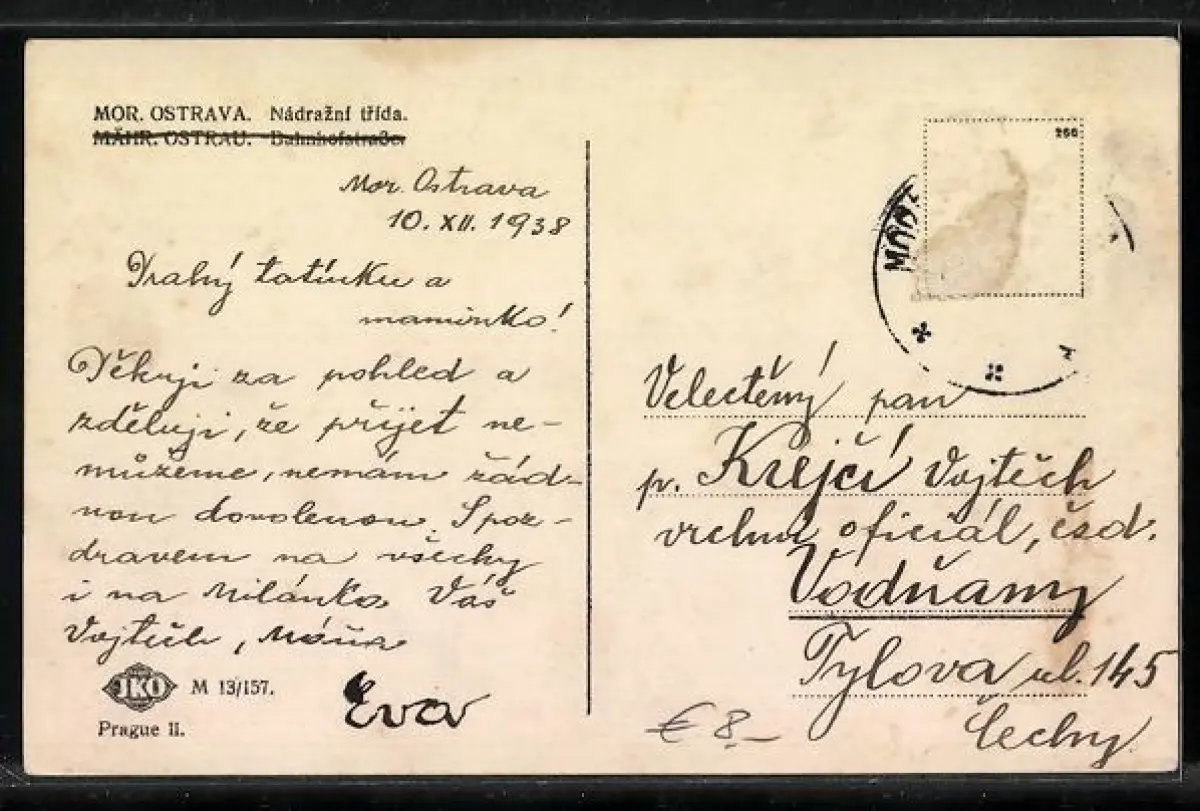 MOR. OSTRAVA. Nádražní třída.
MÄHR. OSTRAU. Bahnhofstraße.
Mor. Ostrava
10. XII. 1938
Drahý tatínku a
maminko!
Děkuji za pohled a
zděluji, že přijet ne-
můžeme, nemám žád-
nou dovolenou. S poz-
dravem na všechny
i na Milánka Váš
Vojtěch, Máňa
Eva
JKO M 13/157.
Prague II.
250
MOR
Velectěný pan
p. Krejčí Vojtěch
vrchní oficiál, čsd.
Vodňany
Tylova ul. 145
Čechy
€ 8.-